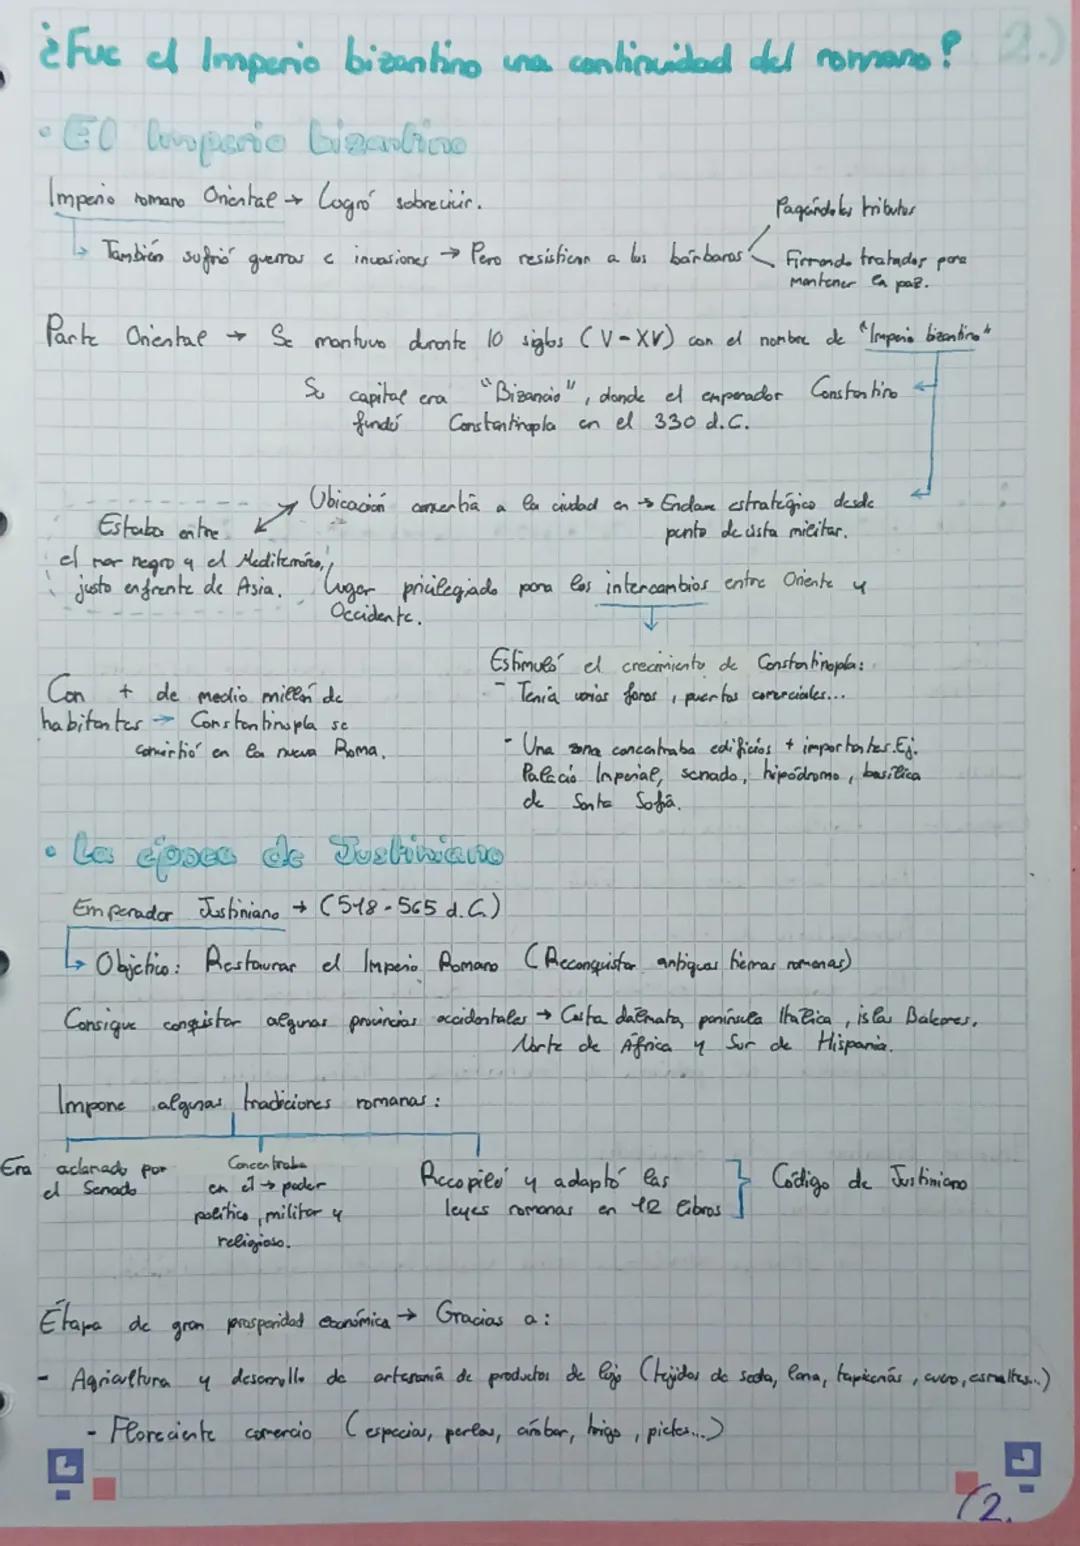 ¿Fue el Imperio bizantino una continuidad del romano? 2.)
• El Imperio bizantino
Imperio romano Oriental → Logró sobrevivir.
También sufrió guerras e invasiones → Pero resistieron a los bárbaros
Pagándoles tributos
Firmando tratados para
mantener la paz.
Parte Oriental → Se mantuvo durante 10 siglos (V-XV) con el nombre de "Imperio bizantino"
Su capital era "Bizancio", donde el emperador Constantino
fundó Constantinopla en el 330 d.C.
Ubicación convertía a la ciudad en → Enclave estratégico desde
punto de vista militar.
Estaba entre
el mar negro y el Mediterráneo,
justo enfrente de Asia.
Lugar privilegiado para los intercambios entre Oriente y
Occidente.
Estimuló el crecimiento de Constantinopla:
- Tenía varios foros, puertos comerciales...
- Una zona concentraba edificios + importantes. Ej.
Palacio Imperial, senado, hipódromo, basílica
de Santa Sofía.
Con + de medio millón de
habitantes → Constantinopla se
convirtió en la nueva Roma.
• La época de Justiniano
Emperador Justiniano → (518-565 d.C.)
Objetivo: Restaurar el Imperio Romano (Reconquistar antiguas tierras romanas)
Consigue conquistar algunas provincias occidentales → Costa dálmata, península Itálica, islas Baleares,
Norte de África y Sur de Hispania.
Impone algunas tradiciones romanas:
Era aclamado por
el Senado
Concentraba
en él → poder
político, militar y
religioso.
Recopiló y adaptó las
leyes romanas en 12 libros
Código de Justiniano
Etapa de gran prosperidad económica → Gracias a:
- Agricultura y desarrollo de artesanía de productos de lujo (tejidos de seda, lana, tapicerías, cuero, esmaltes...)
- Floreciente comercio (especias, perlas, ámbar, trigo, pieles...)
(2.